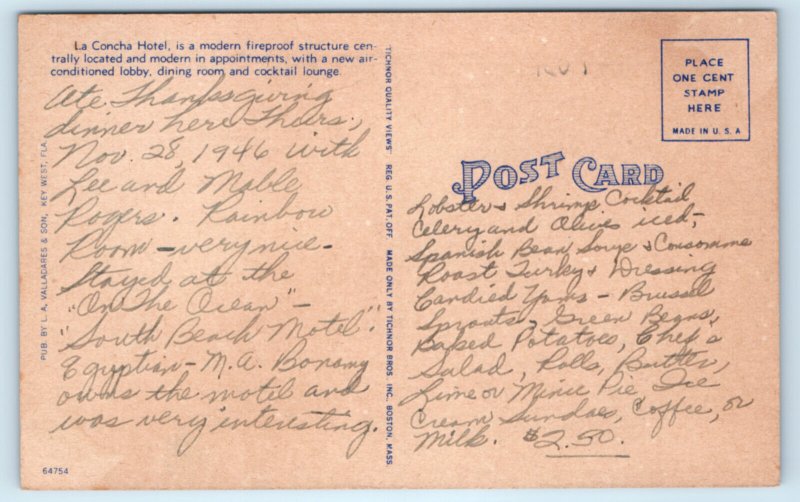 La Concha Hotel, is a modern fireproof structure cen-
trally located and modern in appointments, with a new air-
conditioned lobby, dining room and cocktail lounge.
Ate Thanksgiving
dinner here Thurs.,
Nov. 28, 1946 with
Lee and Mable
Rogers. Rainbow
Room - very nice.
Stayed at the
"On The Ocean" -
"South Beach Motel".
Egyptian - M.A. Bonamy
owns the motel and
was very interesting.
PUB. BY L. A. VALLADARES & SON, KEY WEST, FLA.
64754
TICHNOR QUALITY VIEWS" REG. U. S. PAT. OFF. MADE ONLY BY TICHNOR BROS. INC., BOSTON, MASS.
PLACE
ONE CENT
STAMP
HERE
MADE IN U. S. A
POST CARD
Lobster & Shrimp Cocktail
Celery and Olives iced,
Spanish Bean Soup & Consomme
Roast Turky & Dressing
Candied Yams - Brussel
Sprouts, Green Beans,
Baked Potatoes, Chef's
Salad, Rolls, Butter,
Lime or Mince Pie Ice
Cream Sundae, Coffee, or
Milk. $2.50.